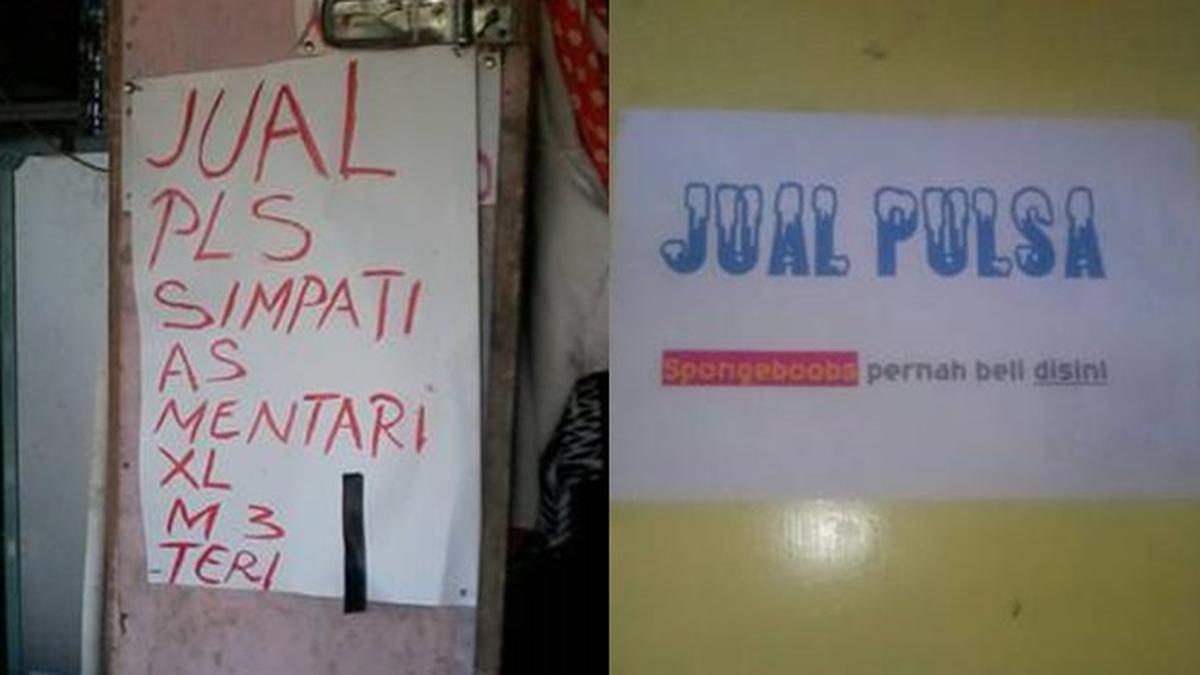 JUAL
PLS
SIMPATI
AS
MENTARI
XL
M 3
TERI
JUAL PULSA
Spongeboobs pernah beli disini